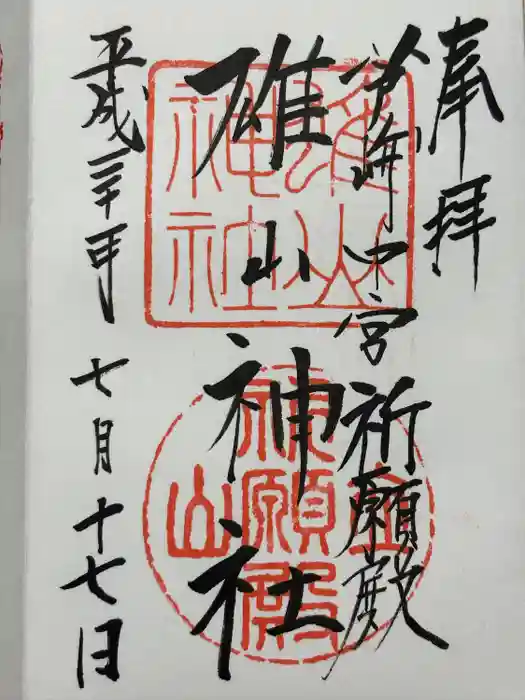 奉拝
芦峅中宮祈願殿
雄山神社
平成三十年
七月十七日
雄山神社
立山祈願殿